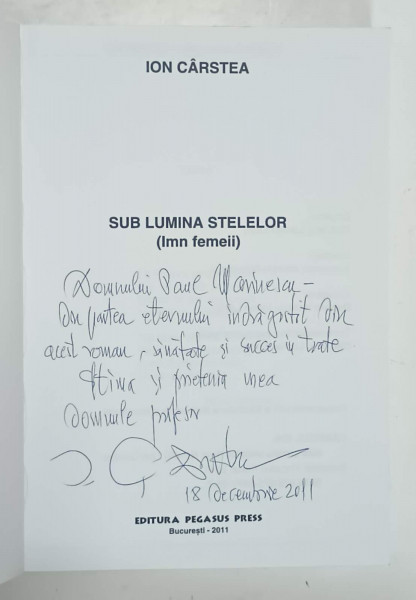 ION CÂRSTEA
SUB LUMINA STELELOR
(Imn femeii)
Domnului Paul Marinescu –
Din partea eternului îndrăgostit din
acest roman, sănătate și succes în toate
Stima și prietenia mea
Domnule profesor
18 Decembrie 2011
EDITURA PEGASUS PRESS
București - 2011